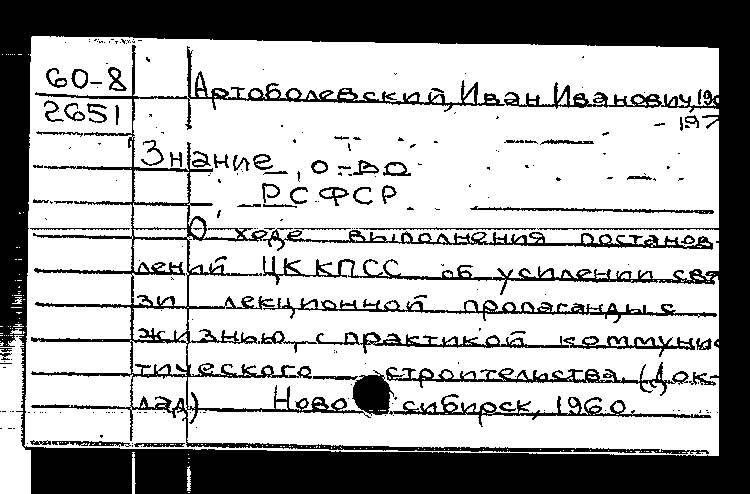 60-8
2651
Артоболевский, Иван Иванович, 190
- 197
Знание, о-во
РСФСР
О ходе выполнения постанов-
лений ЦК КПСС об усилении свя
зи лекционной пропаганды с
жизнью, с практикой коммунис
тического строительства. (Док-
лад) Новосибирск, 1960.